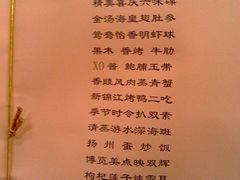 精美喜庆六味碟
金汤海皇翅肚参
鸳鸯怡香明虾球
果木香烤牛肋
XO酱鲍脯玉带
香豉风肉蒸青蟹
新锦江烤鸭二吃
季节时令扒双素
清蒸游水深海斑
扬州蛋炒饭
博览美点映双辉
枸杞莲子炖雪耳